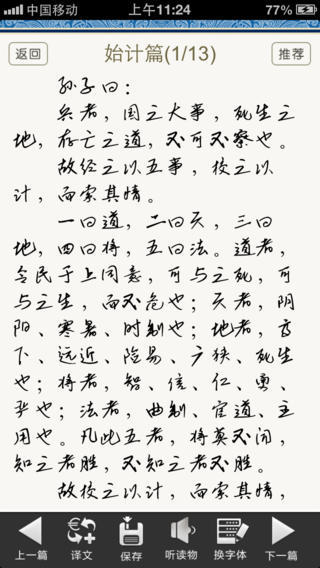 中国移动 上午11:24 77%
返回 始计篇(1/13) 推荐
孙子曰：
兵者，国之大事，死生之
地，存亡之道，不可不察也。
故经之以五事，校之以
计，而索其情。
一曰道，二曰天，三曰
地，四曰将，五曰法。道者，
令民于上同意，可与之死，可
与之生，而不危也；天者，阴
阳、寒暑、时制也；地者，高
下、远近、险易、广狭、死生
也；将者，智、信、仁、勇、
严也；法者，曲制、官道、主
用也。凡此五者，将莫不闻，
知之者胜，不知之者不胜。
故校之以计，而索其情，
上一篇 译文 保存 听读物 换字体 下一篇